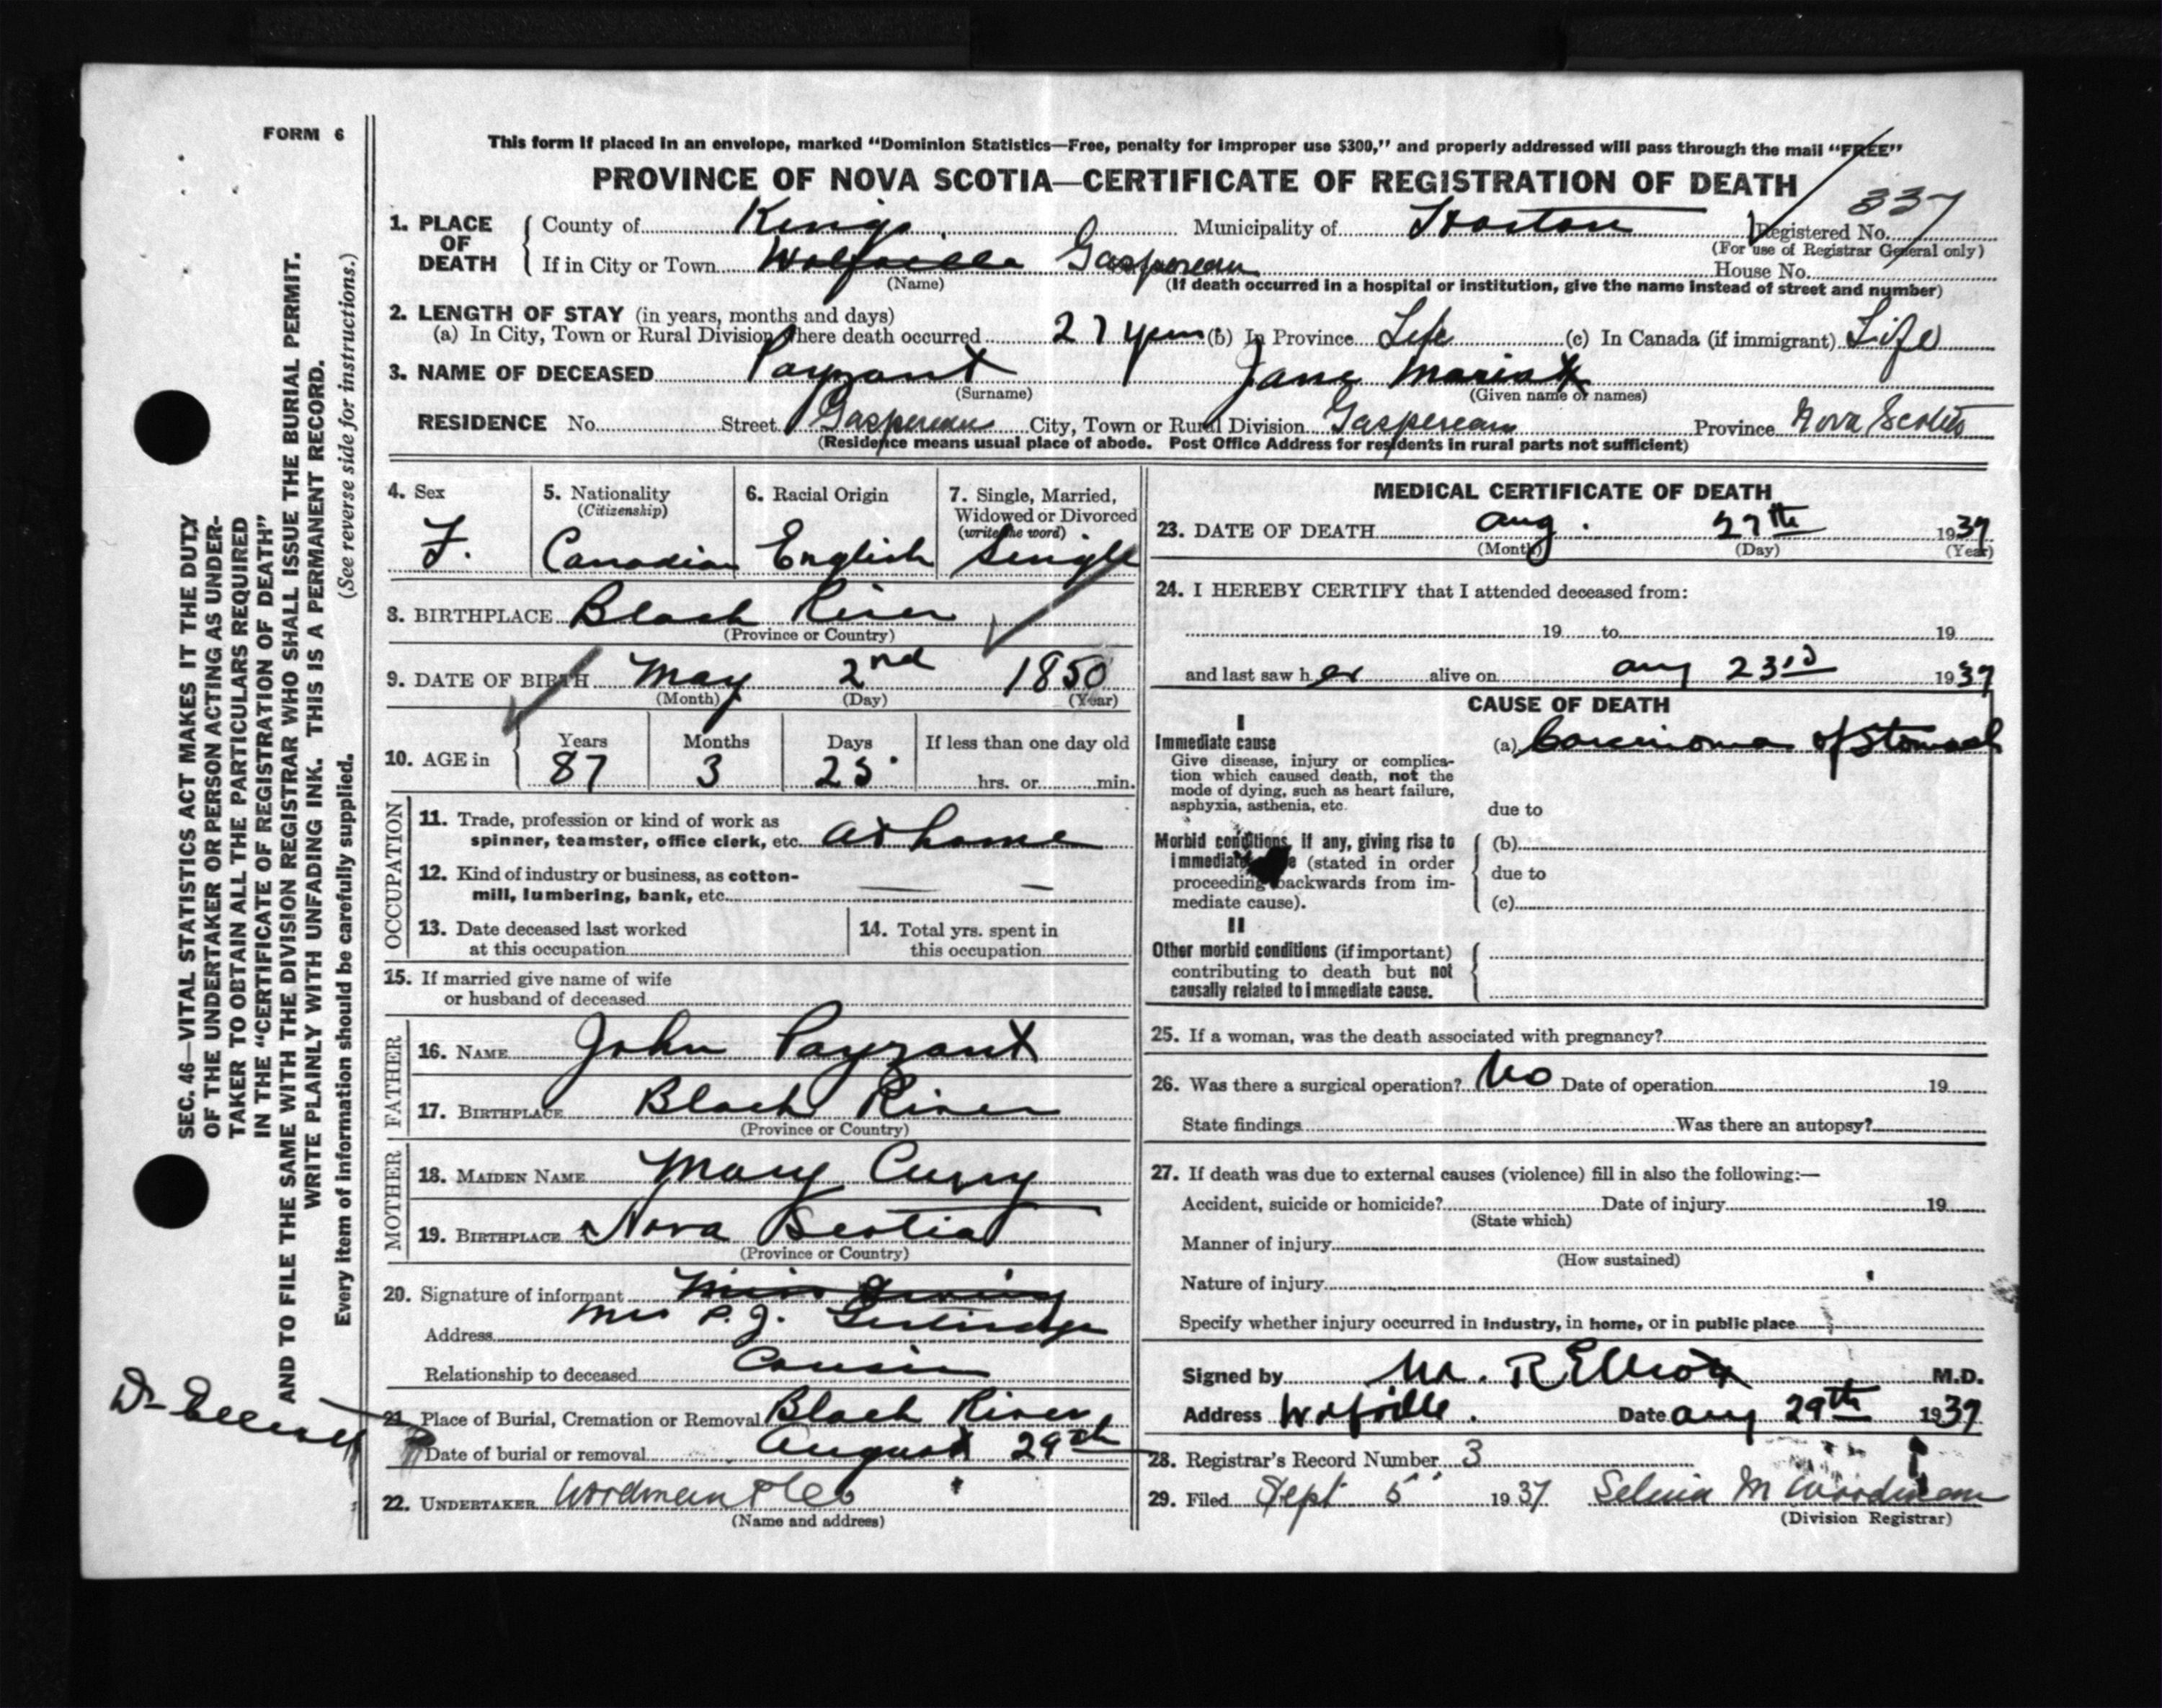 FORM 6
This form if placed in an envelope, marked “Dominion Statistics—Free, penalty for improper use $300,” and properly addressed will pass through the mail “FREE”
PROVINCE OF NOVA SCOTIA—CERTIFICATE OF REGISTRATION OF DEATH
337
1. PLACE OF DEATH { County of Kings Municipality of Registered No.
(For use of Registrar General only)
If in City or Town Wolfville Gaspereau House No.
(Name) (If death occurred in a hospital or institution, give the name instead of street and number)
2. LENGTH OF STAY (in years, months and days)
(a) In City, Town or Rural Division where death occurred 27 years (b) In Province Life (c) In Canada (if immigrant) Life
3. NAME OF DECEASED Payzant Jane Maria
(Surname) (Given name or names)
RESIDENCE No. Street Gaspereau City, Town or Rural Division Gaspereau Province Nova Scotia
(Residence means usual place of abode. Post Office Address for residents in rural parts not sufficient)
4. Sex 5. Nationality (Citizenship) 6. Racial Origin 7. Single, Married, Widowed or Divorced (write the word)
F. Canadian English Single
8. BIRTHPLACE Black River
(Province or Country)
9. DATE OF BIRTH May 2nd 1850
(Month) (Day) (Year)
10. AGE in { Years Months Days If less than one day old
87 3 25 hrs. or min.
OCCUPATION
11. Trade, profession or kind of work as
spinner, teamster, office clerk, etc. at home
12. Kind of industry or business, as cotton-
mill, lumbering, bank, etc. — —
13. Date deceased last worked
at this occupation
14. Total yrs. spent in
this occupation
15. If married give name of wife
or husband of deceased
FATHER
16. NAME John Payzant
17. BIRTHPLACE Black River
(Province or Country)
MOTHER
18. MAIDEN NAME Mary Curry
19. BIRTHPLACE Nova Scotia
(Province or Country)
20. Signature of informant Miss
Mrs P. J.
Address
Relationship to deceased Cousin
21. Place of Burial, Cremation or Removal Black River
Date of burial or removal August 29th
22. UNDERTAKER Woodman & Co
(Name and address)
MEDICAL CERTIFICATE OF DEATH
23. DATE OF DEATH Aug. 27th 1937
(Month) (Day) (Year)
24. I HEREBY CERTIFY that I attended deceased from:
19 to 19
and last saw her alive on Aug 23rd 1937
CAUSE OF DEATH
I
Immediate cause
Give disease, injury or complica-
tion which caused death, not the
mode of dying, such as heart failure,
asphyxia, asthenia, etc.
(a) Carcinoma of Stomach
due to
Morbid conditions, if any, giving rise to
immediate (stated in order
proceeding backwards from im-
mediate cause).
(b)
due to
(c)
II
Other morbid conditions (if important)
contributing to death but not
causally related to immediate cause.
25. If a woman, was the death associated with pregnancy?
26. Was there a surgical operation? No Date of operation 19
State findings Was there an autopsy?
27. If death was due to external causes (violence) fill in also the following:—
Accident, suicide or homicide? Date of injury 19
(State which)
Manner of injury
(How sustained)
Nature of injury
Specify whether injury occurred in industry, in home, or in public place
Signed by M. R Elliott M.D.
Address Wolfville. Date Aug 29th 1937
28. Registrar’s Record Number 3
29. Filed Sept 5 1937 M Woodman
(Division Registrar)
SEC. 46—VITAL STATISTICS ACT MAKES IT THE DUTY
OF THE UNDERTAKER OR PERSON ACTING AS UNDER-
TAKER TO OBTAIN ALL THE PARTICULARS REQUIRED
IN THE “CERTIFICATE OF REGISTRATION OF DEATH”
AND TO FILE THE SAME WITH THE DIVISION REGISTRAR WHO SHALL ISSUE THE BURIAL PERMIT.
WRITE PLAINLY WITH UNFADING INK. THIS IS A PERMANENT RECORD.
Every item of information should be carefully supplied. (See reverse side for instructions.)
Dr Elliott